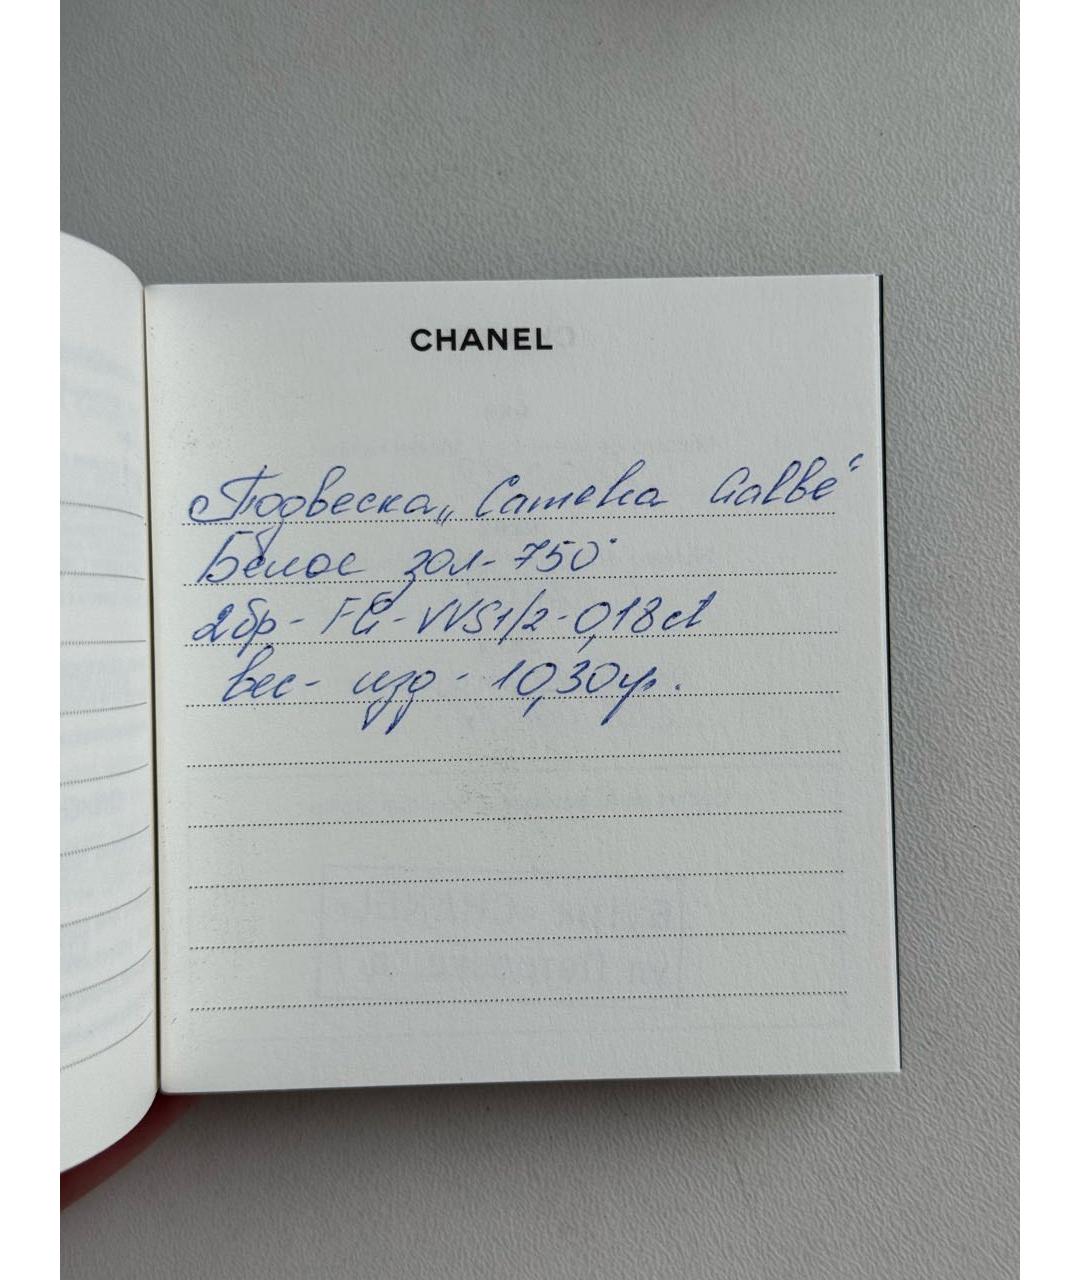 CHANEL
Подвеска „Camelia Galbé“
Белое зол- 750°
2бр - FG - VVS1/2 - 0,18 ct
вес - изд - 10,30гр.